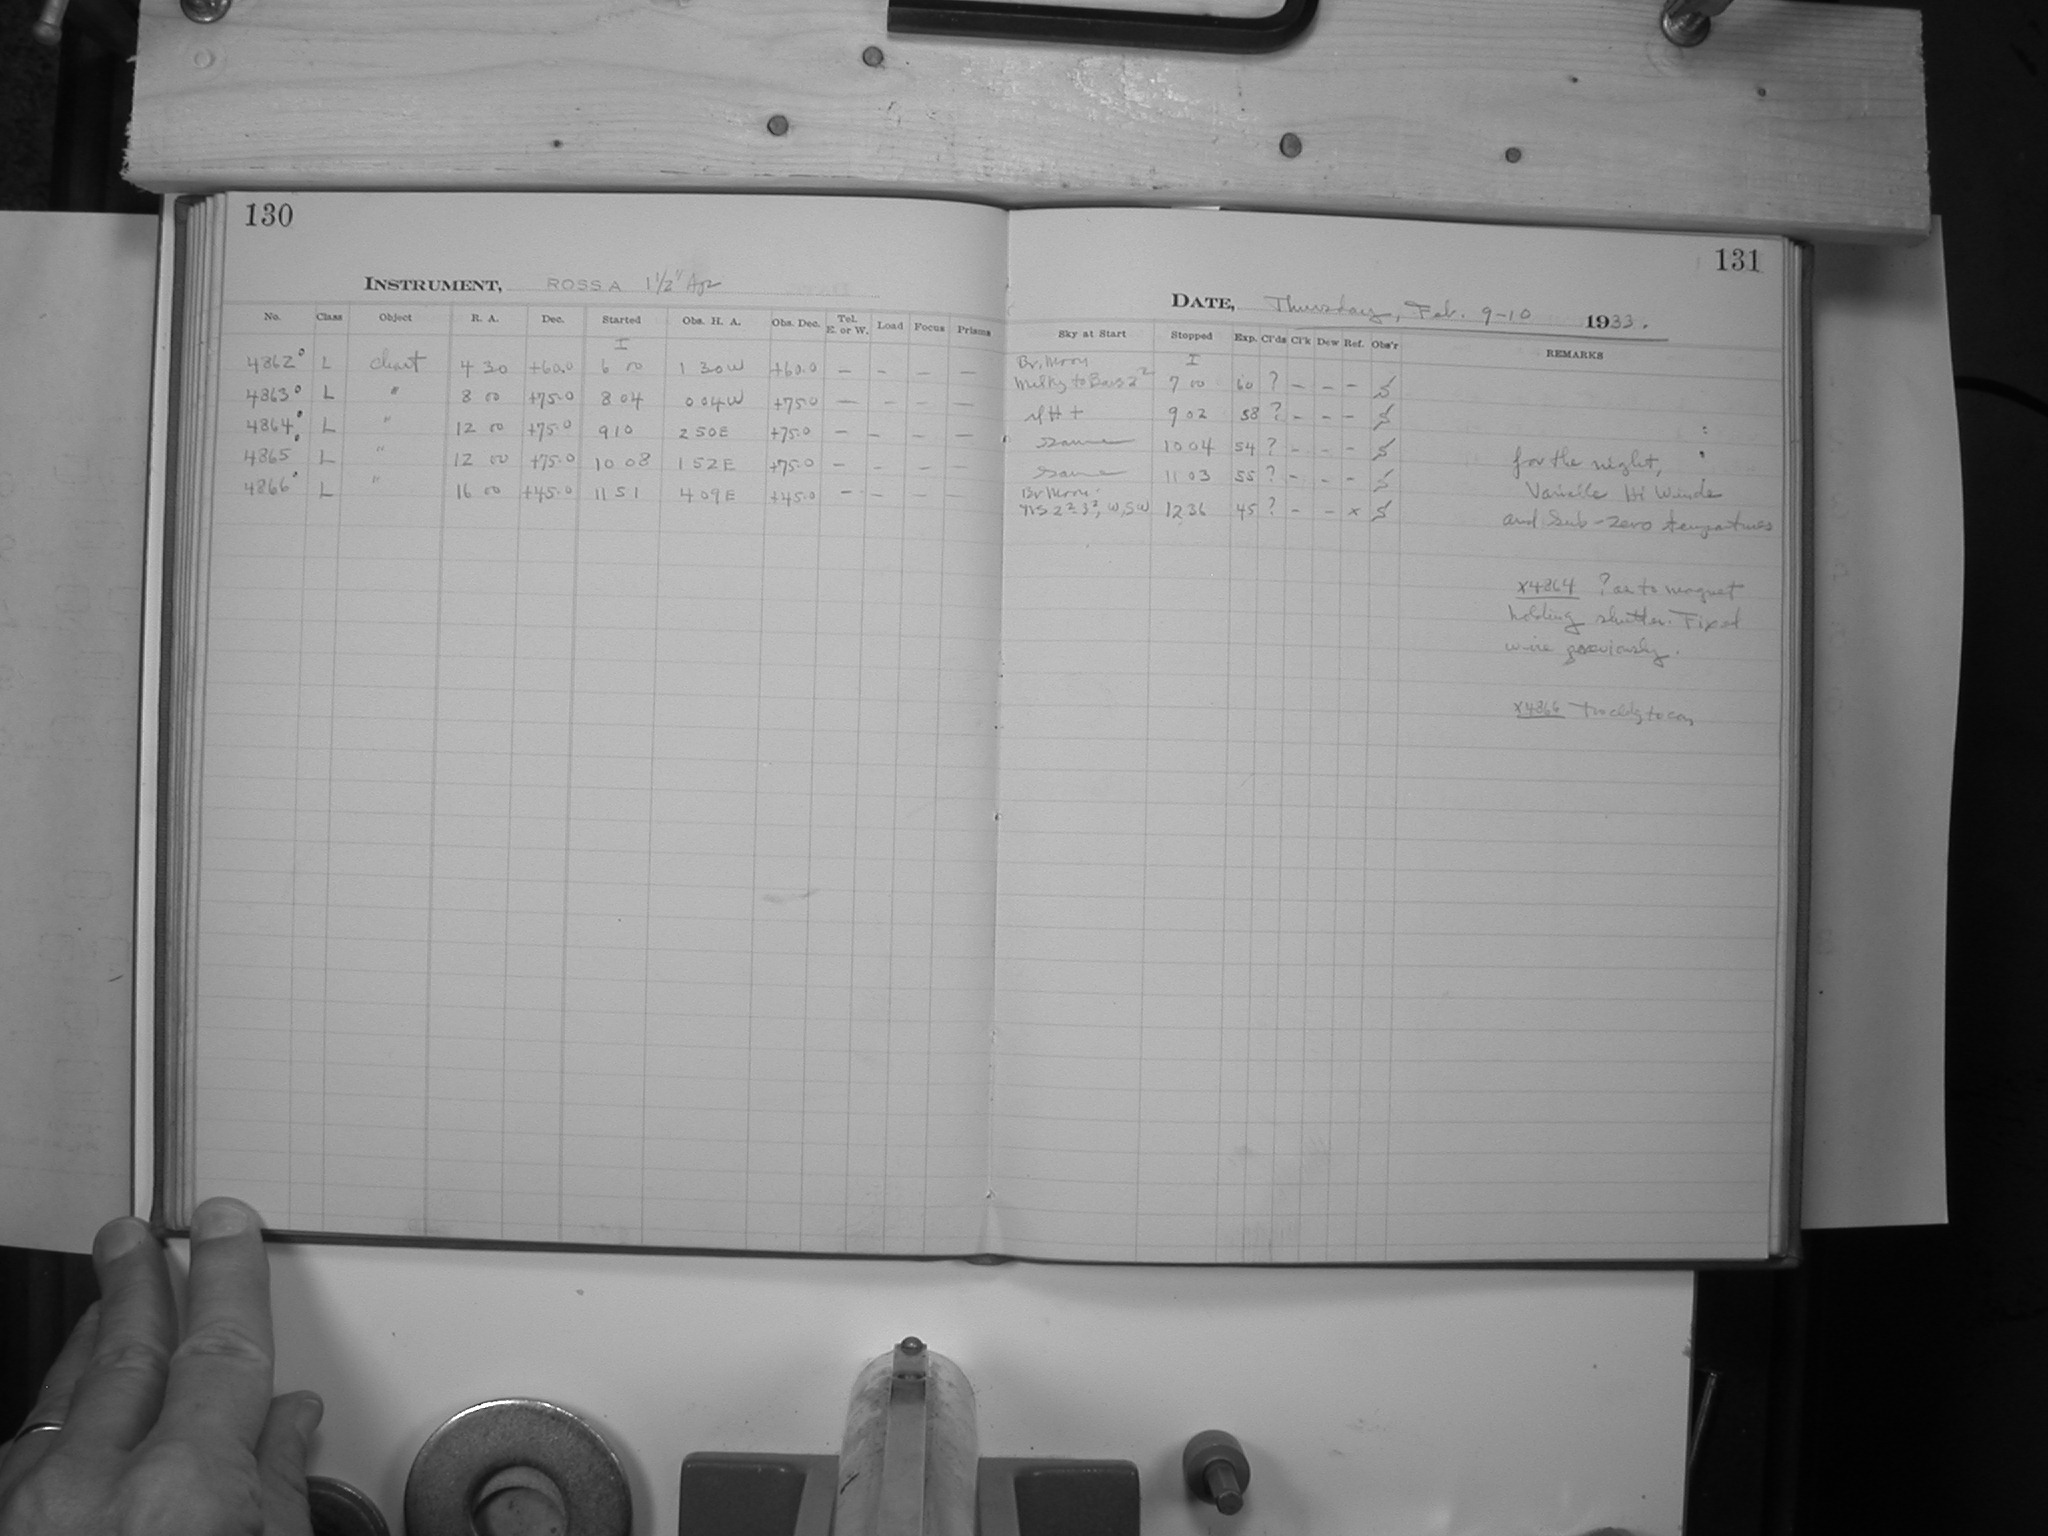 130
INSTRUMENT, ROSS A 1 1/2" Apr
No. Class Object R. A. Dec. Started Obs. H. A. Obs. Dec. Tel. E. or W. Load Focus Prisms
I
4862° L chart 4 30 +60.0 6 00 1 30 W +60.0 — — — —
4863° L " 8 00 +75.0 8 04 0 04 W +75.0 — — — —
4864° L " 12 00 +75.0 9 10 2 50 E +75.0 — — — —
4865° L " 12 00 +75.0 10 08 1 52 E +75.0 — — — —
4866° L " 16 00 +45.0 11 51 4 09 E +45.0 — — — —
131
DATE, Thursday, Feb. 9-10 1933.
Sky at Start Stopped Exp. Cl'ds Cl'k Dew Ref. Obs'r REMARKS
Br. Moon I
Milky to Bars 2² 7 00 60 ? — — —
9 02 58 ? — — —
Same 10 04 54 ? — — —
Same 11 03 55 ? — — —
Br Moon
W, SW 12 36 45 ? — — x
for the night,
Variable Hi Winds
and Sub-zero temperatures
x4864 ? as to magnet
holding shutter. Fixed
wire previously.
x4866